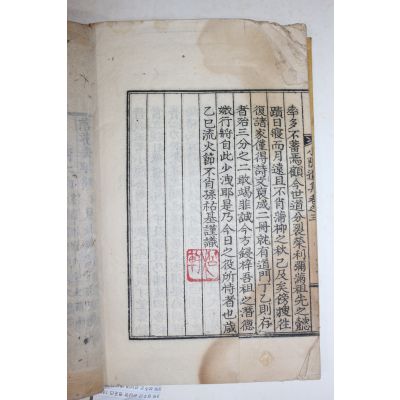 卷之三
率多不蓄焉顧今世道分裂榮利彌滿祖先之懿
蹟日寢而月遠且不肖蒲柳之秋已及矣傍搜往
復諸家僅得詩文裒成二冊就有道門丁乙則存
者殆三分之二敢竭菲誠今方鋟梓吾祖之潛德
媺行將自此少洩耶是乃今日之役所恃者也歲
乙巳流火節不肖孫祐基謹識